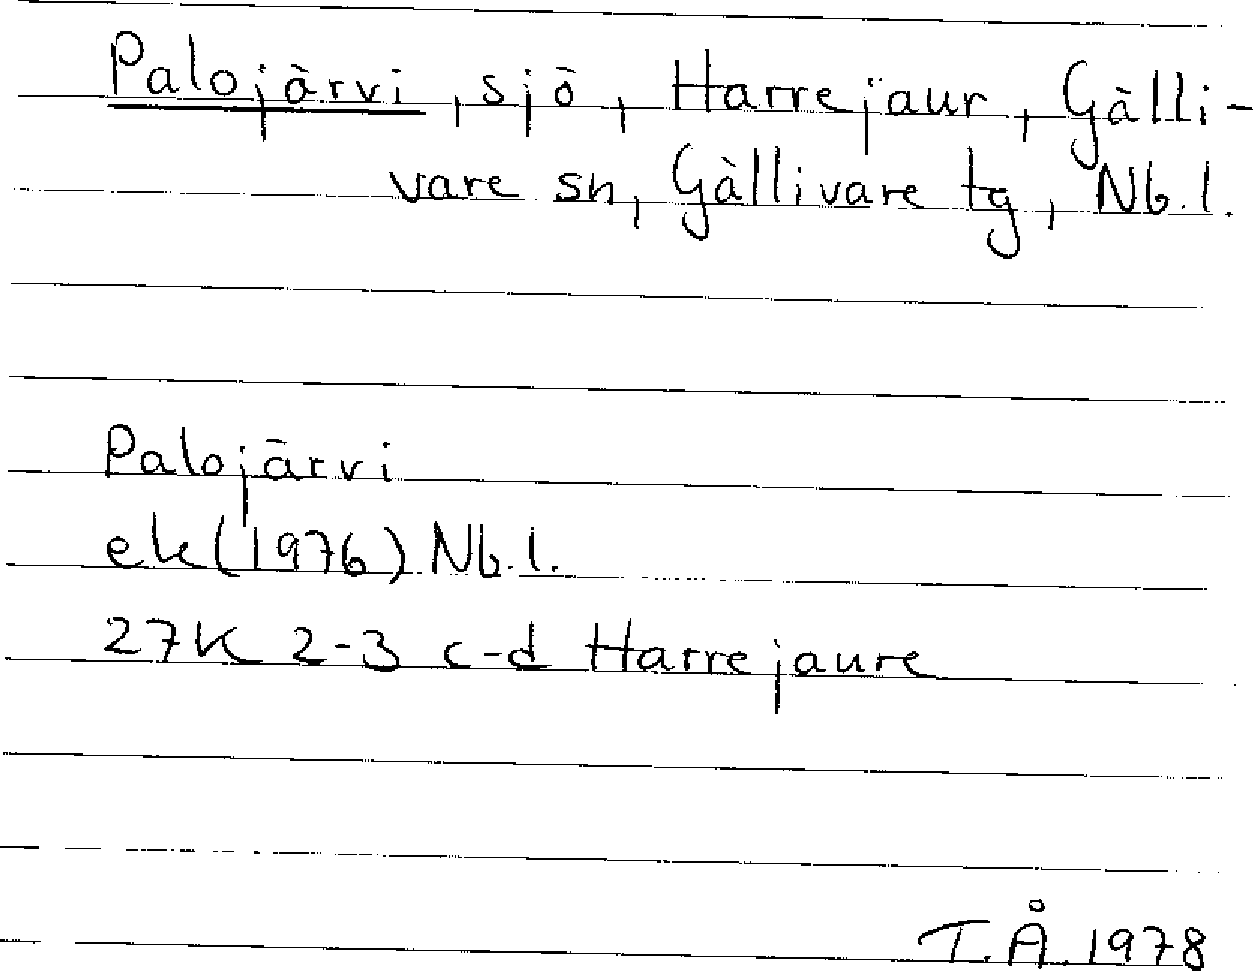 Palojärvi, sjö, Harrejaur, Gälli-
vare sn, Gällivare tg, Nb.l.
Palojärvi
ek(1976) Nb.l.
27K 2-3 c-d Harrejaure
T.Å.1978